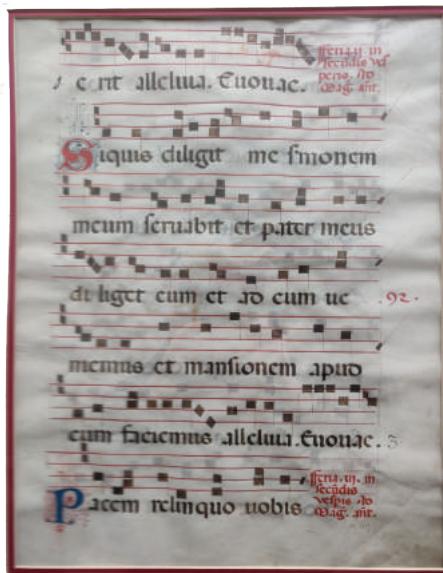 feria.ij. in
secūdis ves
peris. ad
Mag. añt.
cerit alleluia. Euouae.
Siquis diligit me sermonem
meum seruabit et pater meus
diliget eum et ad eum ue
.92.
niemus et mansionem apud
eum faciemus alleluia. Euouae.
feria.iij. in
secūdis
vespis. ad
Mag. añt.
Pacem relinquo uobis